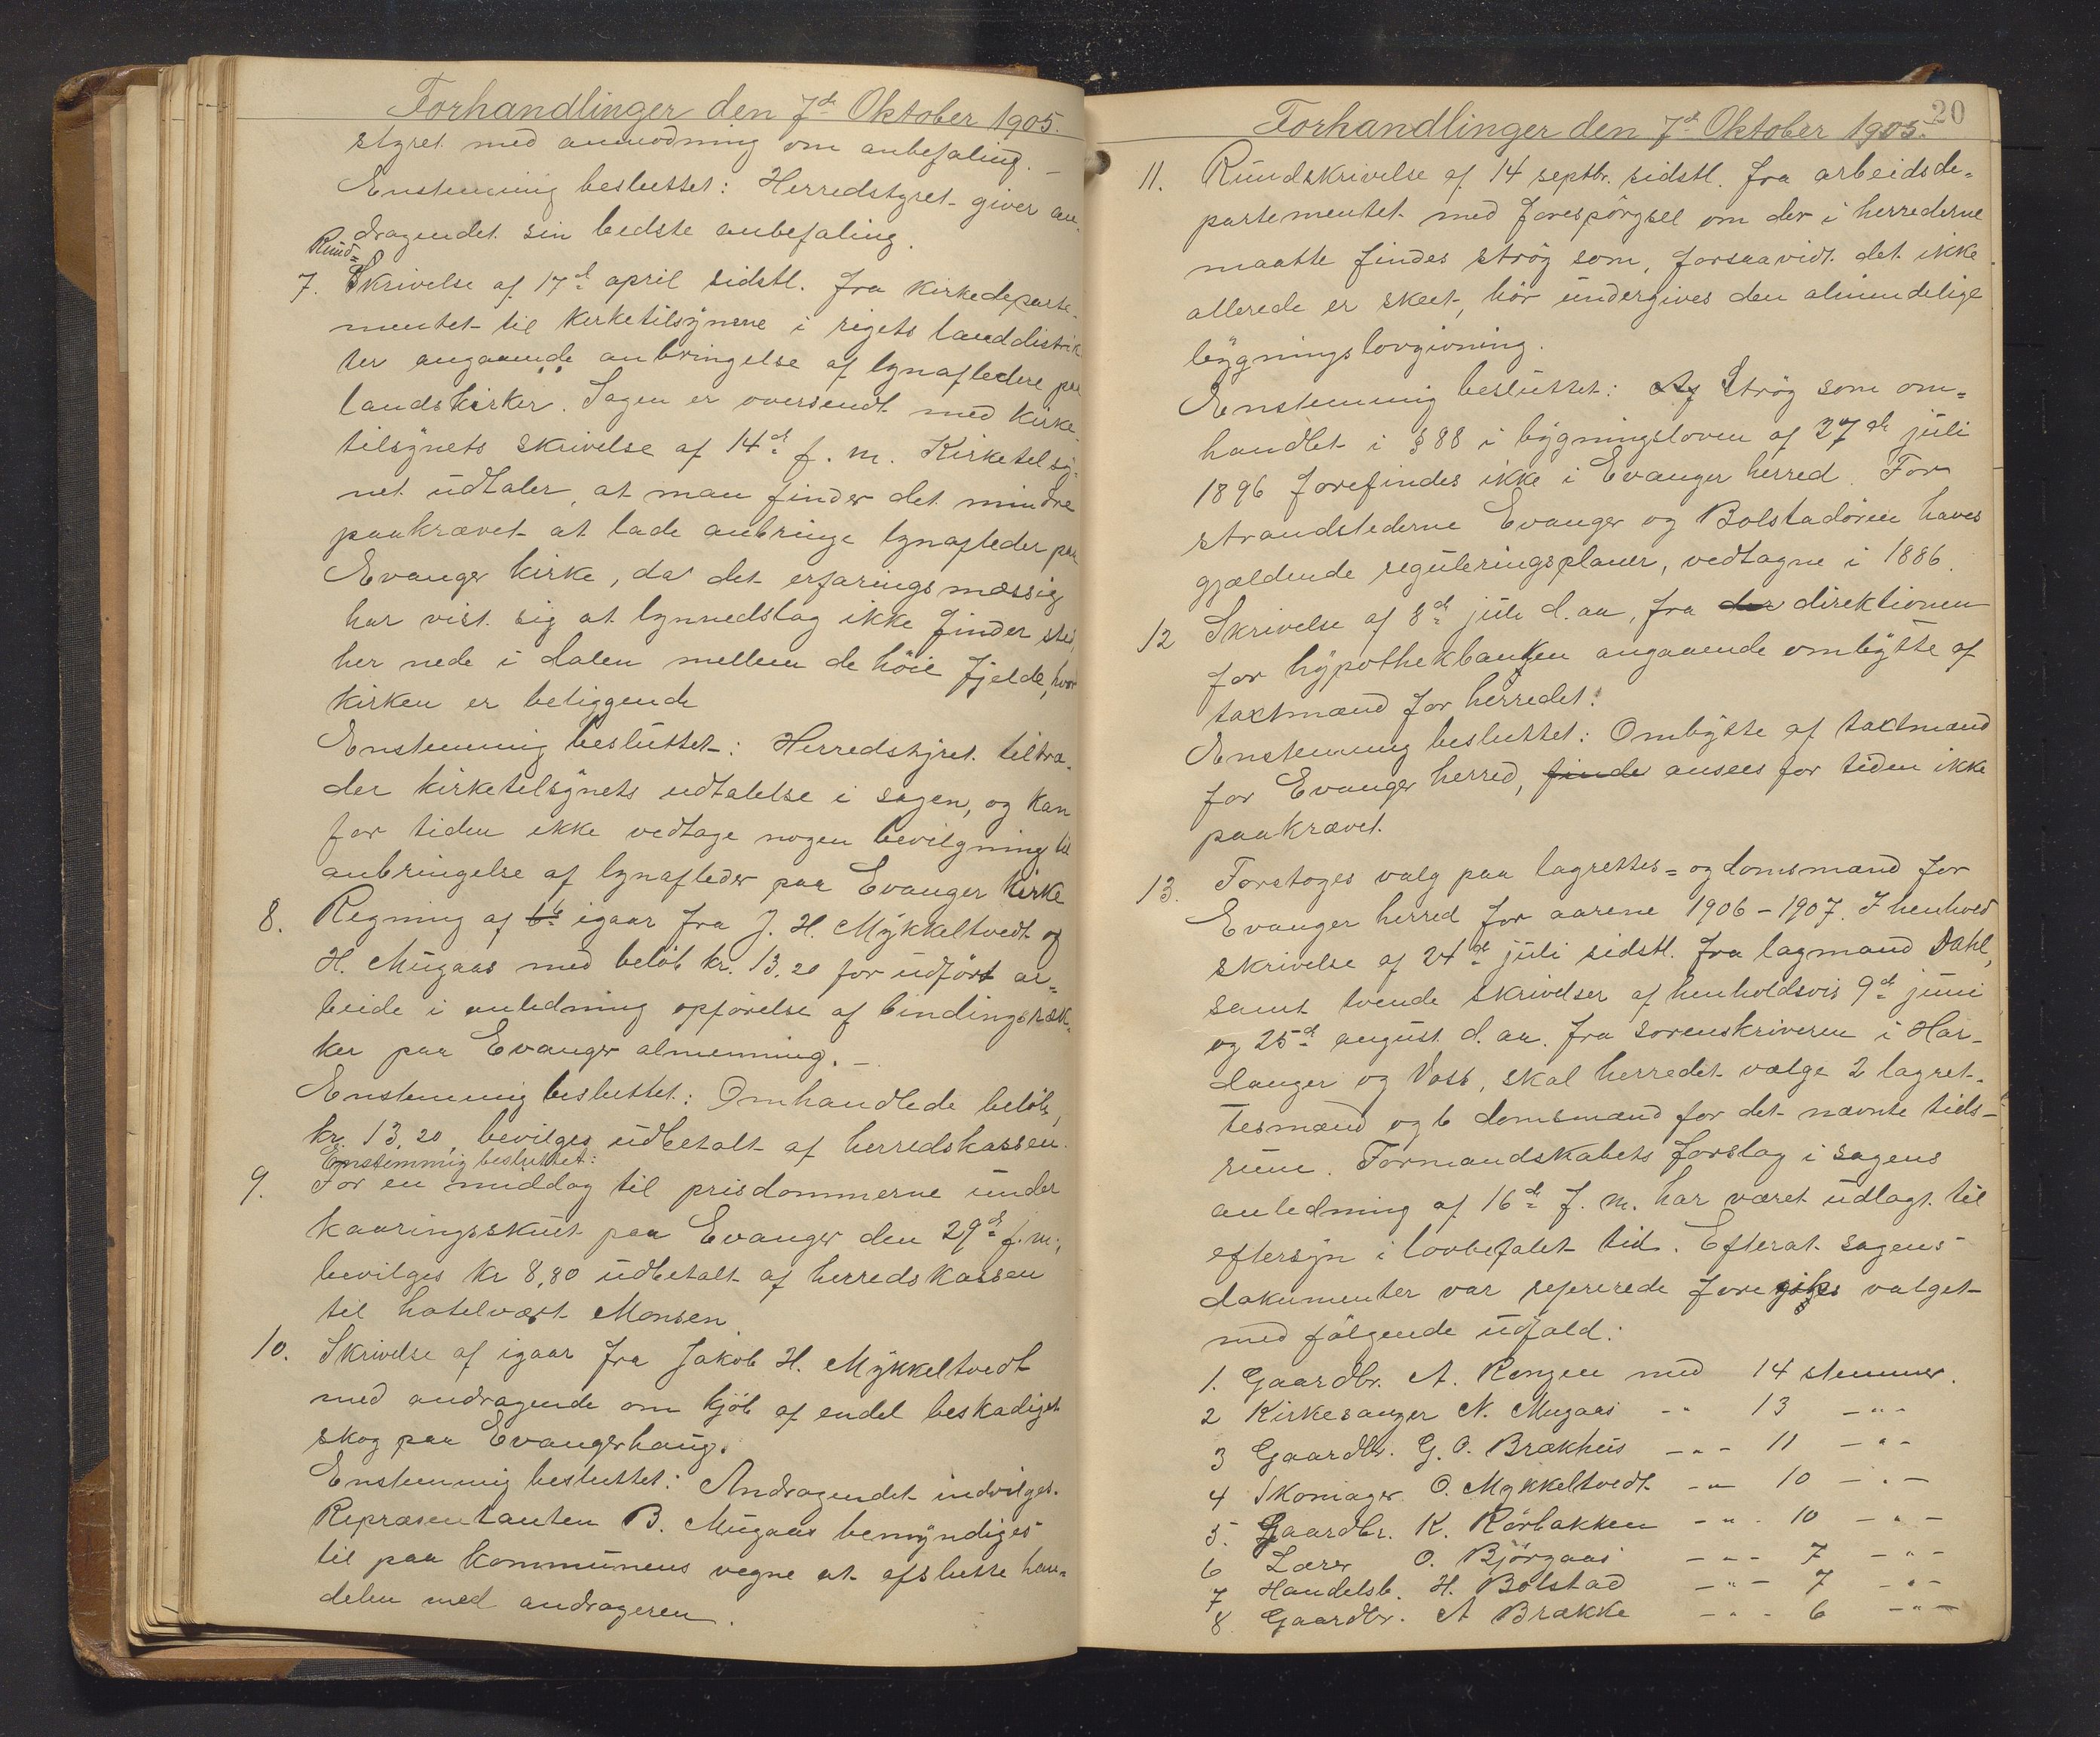 Forhandlinger den 7de Oktober 1905.
styret med anmodning om anbefaling. –
Enstemmig besluttet: Herredstyret giver an-
dragendet sin bedste anbefaling.
Rund-
7. Skrivelse af 17de april sidstl. fra kirkedeparte-
mentet til kirketilsynene i rigets landdistrik-
ter angaaende anbringelse af lynafledere paa
landskirker. Sagen er oversendt med kirke-
tilsynets skrivelse af 14de f. m. Kirketilsy-
net udtaler, at man finder det mindre
paakrævet at lade anbringe lynafleder paa
Evanger kirke, da det erfaringsmæssig
har vist sig at lynnedslag ikke finder sted
her nede i dalen mellem de höie fjelde, hvor
kirken er beliggende
Enstemmig besluttet: Herredstyret tiltræ-
der kirketilsynets udtalelse i sagen, og kan
for tiden ikke vedtage nogen bevilgning til
anbringelse af lynafleder paa Evanger kirke
8. Regning af igaar fra J. H. Mykkeltvedt og
H. Mugaas med belöb kr. 13,20 for udfört ar-
beide i anledning opförelse af bindingsræk-
ker paa Evanger almenning. –
Enstemmig besluttet: Omhandlede belöb,
kr. 13,20, bevilges udbetalt af herredskassen.
Enstemmig besluttet:
9. For en middag til prisdommerne under
kaaringsskuet paa Evanger den 29de f. m.,
bevilges kr 8,80 udbetalt af herredskassen
til hotelvært Monsen.
10. Skrivelse af igaar fra Jakob H. Mykkeltvedt
med andragende om kjöb af endel beskadiget
skog paa Evangerhaug.
Enstemmig besluttet: Andragendet indvilges.
Repræsentanten B. Mugaas bemyndiges
til paa kommunens vegne at afslutte han-
delen med andrageren.
20
Forhandlinger den 7de Oktober 1905.
11. Rundskrivelse af 14 septbr. sidstl. fra arbeidsde-
partementet med forespörgsel om der i herrederne
maatte findes strög som, forsaavidt det ikke
allerede er skeet, bör undergives den almindelige
bygningslovgivning.
Enstemmig besluttet: Af Strög som om-
handlet i § 88 i bygningsloven af 27de juli
1896 forefindes ikke i Evanger herred. For
strandstederne Evanger og Bolstadören haves
gjældende reguleringsplaner, vedtagne i 1886.
12 Skrivelse af 8de juli d. aa, fra der direktionen
for hypothekbanken angaaende ombytte af
taxtmænd for herredet.
Enstemmig besluttet: Ombytte af taxtmænd
for Evanger herred, finde ansees for tiden ikke
paakrævet.
13. Foretoges valg paa lagrettes- og domsmænd for
Evanger herred for aarene 1906–1907. I henhold
skrivelse af 24de juli sidstl. fra lagmand Dahl,
samt tvende skrivelser af henholdsvis 9de juni
og 25de august d. aa. fra sorenskriveren i Har-
danger og Voss, skal herredet vælge 2 lagret-
tesmænd og 6 domsmænd for det nævnte tids-
rum. Formandskabets forslag i sagens
anledning af 16de f. m. har været udlagt til
eftersyn i lovbefalet tid. Efterat sagens
dokumenter var refererede foregik valget
med fölgende udfald:
1. Gaardbr. A. Rengen med 14 stemmer.
2 Kirkesanger N. Mugaas -"- 13 -"-
3 Gaardbr. G. O. Brækhus -"- 11 -"-
4 Skomager O. Mykkeltvedt -"- 10 -"-
5. Gaardbr. K. Rörbakken -"- 10 -"-
6 Lærer O. Björgaas -"- 7 -"-
7 Handelsb. H. Bolstad -"- 7 -"-
8 Gaardbr. A Brække -"- 6 -"-